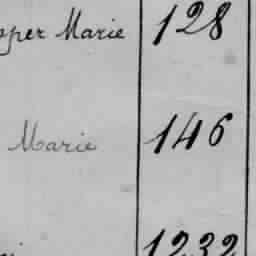 per Marie 128
Marie 146
1232